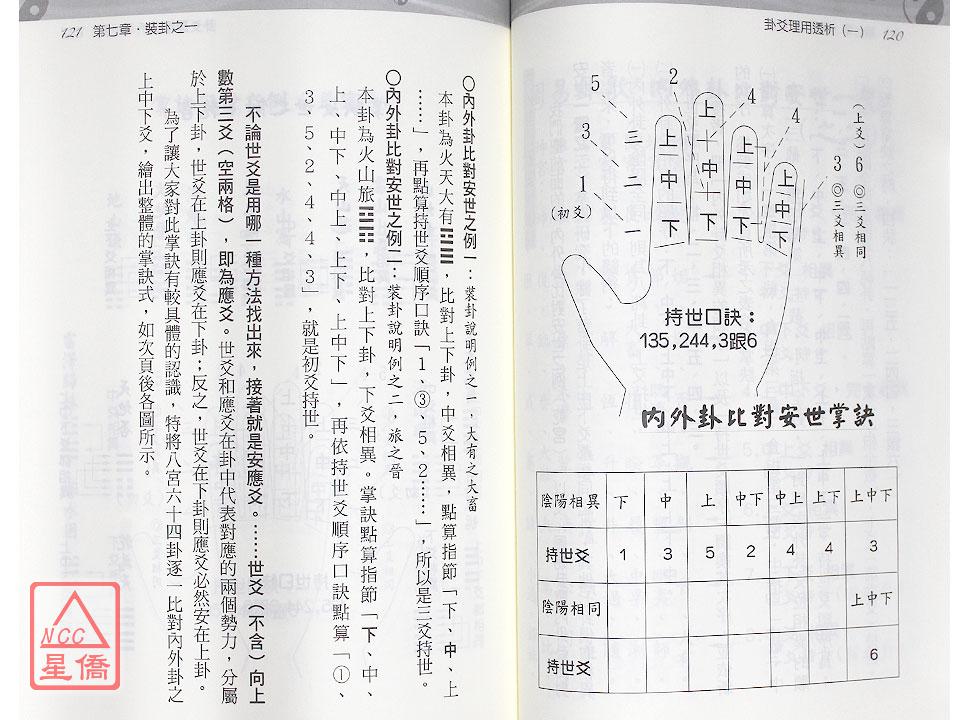 卦爻理用透析（一） 120
（上爻）6 ◎三爻相同
3 ◎三爻相異
4
4
2
5
3
1
（初爻）
三
二
一
上
中
下
上
中
下
上
中
下
上
中
下
持世口訣：
135,244,3跟6
內外卦比對安世掌訣
陰陽相異 下 中 上 中下 中上 上下 上中下
持世爻 1 3 5 2 4 4 3
陰陽相同 上中下
持世爻 6
121 第七章・裝卦之一
○內外卦比對安世之例一：裝卦說明例之一，大有之大畜
本卦為火天大有䷍，比對上下卦，中爻相異，點算指節「下、中、上
……」，再點算持世爻順序口訣「1、③、5、2……」，所以是三爻持世。
○內外卦比對安世之例二：裝卦說明例之二，旅之晉
本卦為火山旅䷷，比對上下卦，下爻相異。掌訣點算指節「下、中、
上、中下、中上、上下、上中下」，再依持世爻順序口訣點算「①、
3、5、2、4、4、3」，就是初爻持世。
不論世爻是用哪一種方法找出來，接著就是安應爻。……世爻（不含）向上
數第三爻（空兩格），即為應爻。世爻和應爻在卦中代表對應的兩個勢力，分屬
於上下卦，世爻在上卦則應爻在下卦；反之，世爻在下卦則應爻必然安在上卦。
為了讓大家對此掌訣有較具體的認識，特將八宮六十四卦逐一比對內外卦之
上中下爻，繪出整體的掌訣式，如次頁後各圖所示。
NCC
星僑